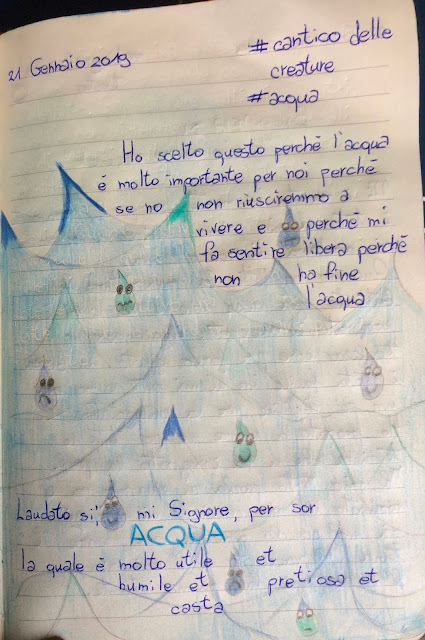 21 Gennaio 2019
#cantico delle
creature
#acqua
Ho scelto questo perché l'acqua
é molto importante per noi perché
se no non riusciremmo a
vivere e perché mi
fa sentire libera perché
non ha fine
l'acqua
Laudato si', mi Signore, per sor
ACQUA
la quale è molto utile et
humile et pretiosa et
casta